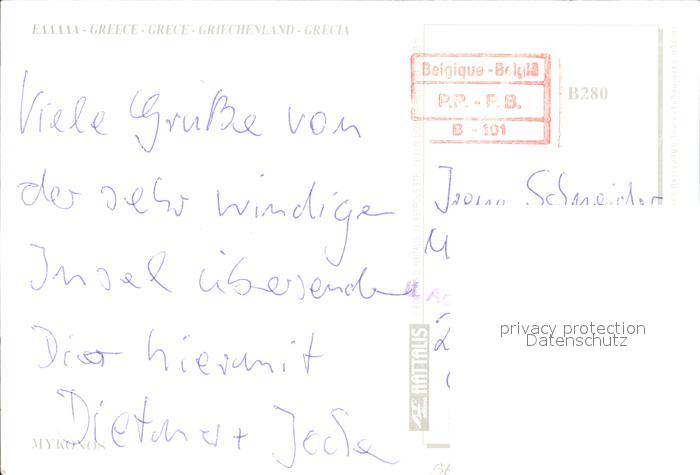 ΕΛΛΑΔΑ - GREECE - GRECE - GRIECHENLAND - GRECIA
Viele Grüße von
der sehr windigen
Insel übersenden
Dir hiermit
Dietmar +
MYKONOS
Belgique - België
P.P. - P.B.
B - 101
B280
Schneider
HAΪTALIS
privacy protection
Datenschutz